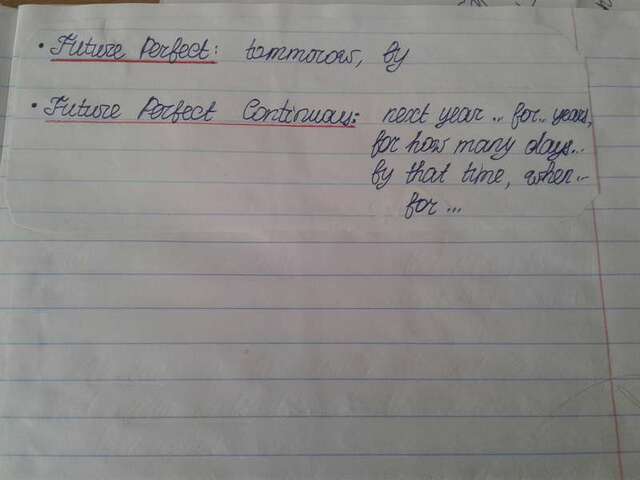 • Future Perfect: tommorow, by
• Future Perfect Continuous: next year .. for .. years,
for how many days...
by that time, when..
for ...